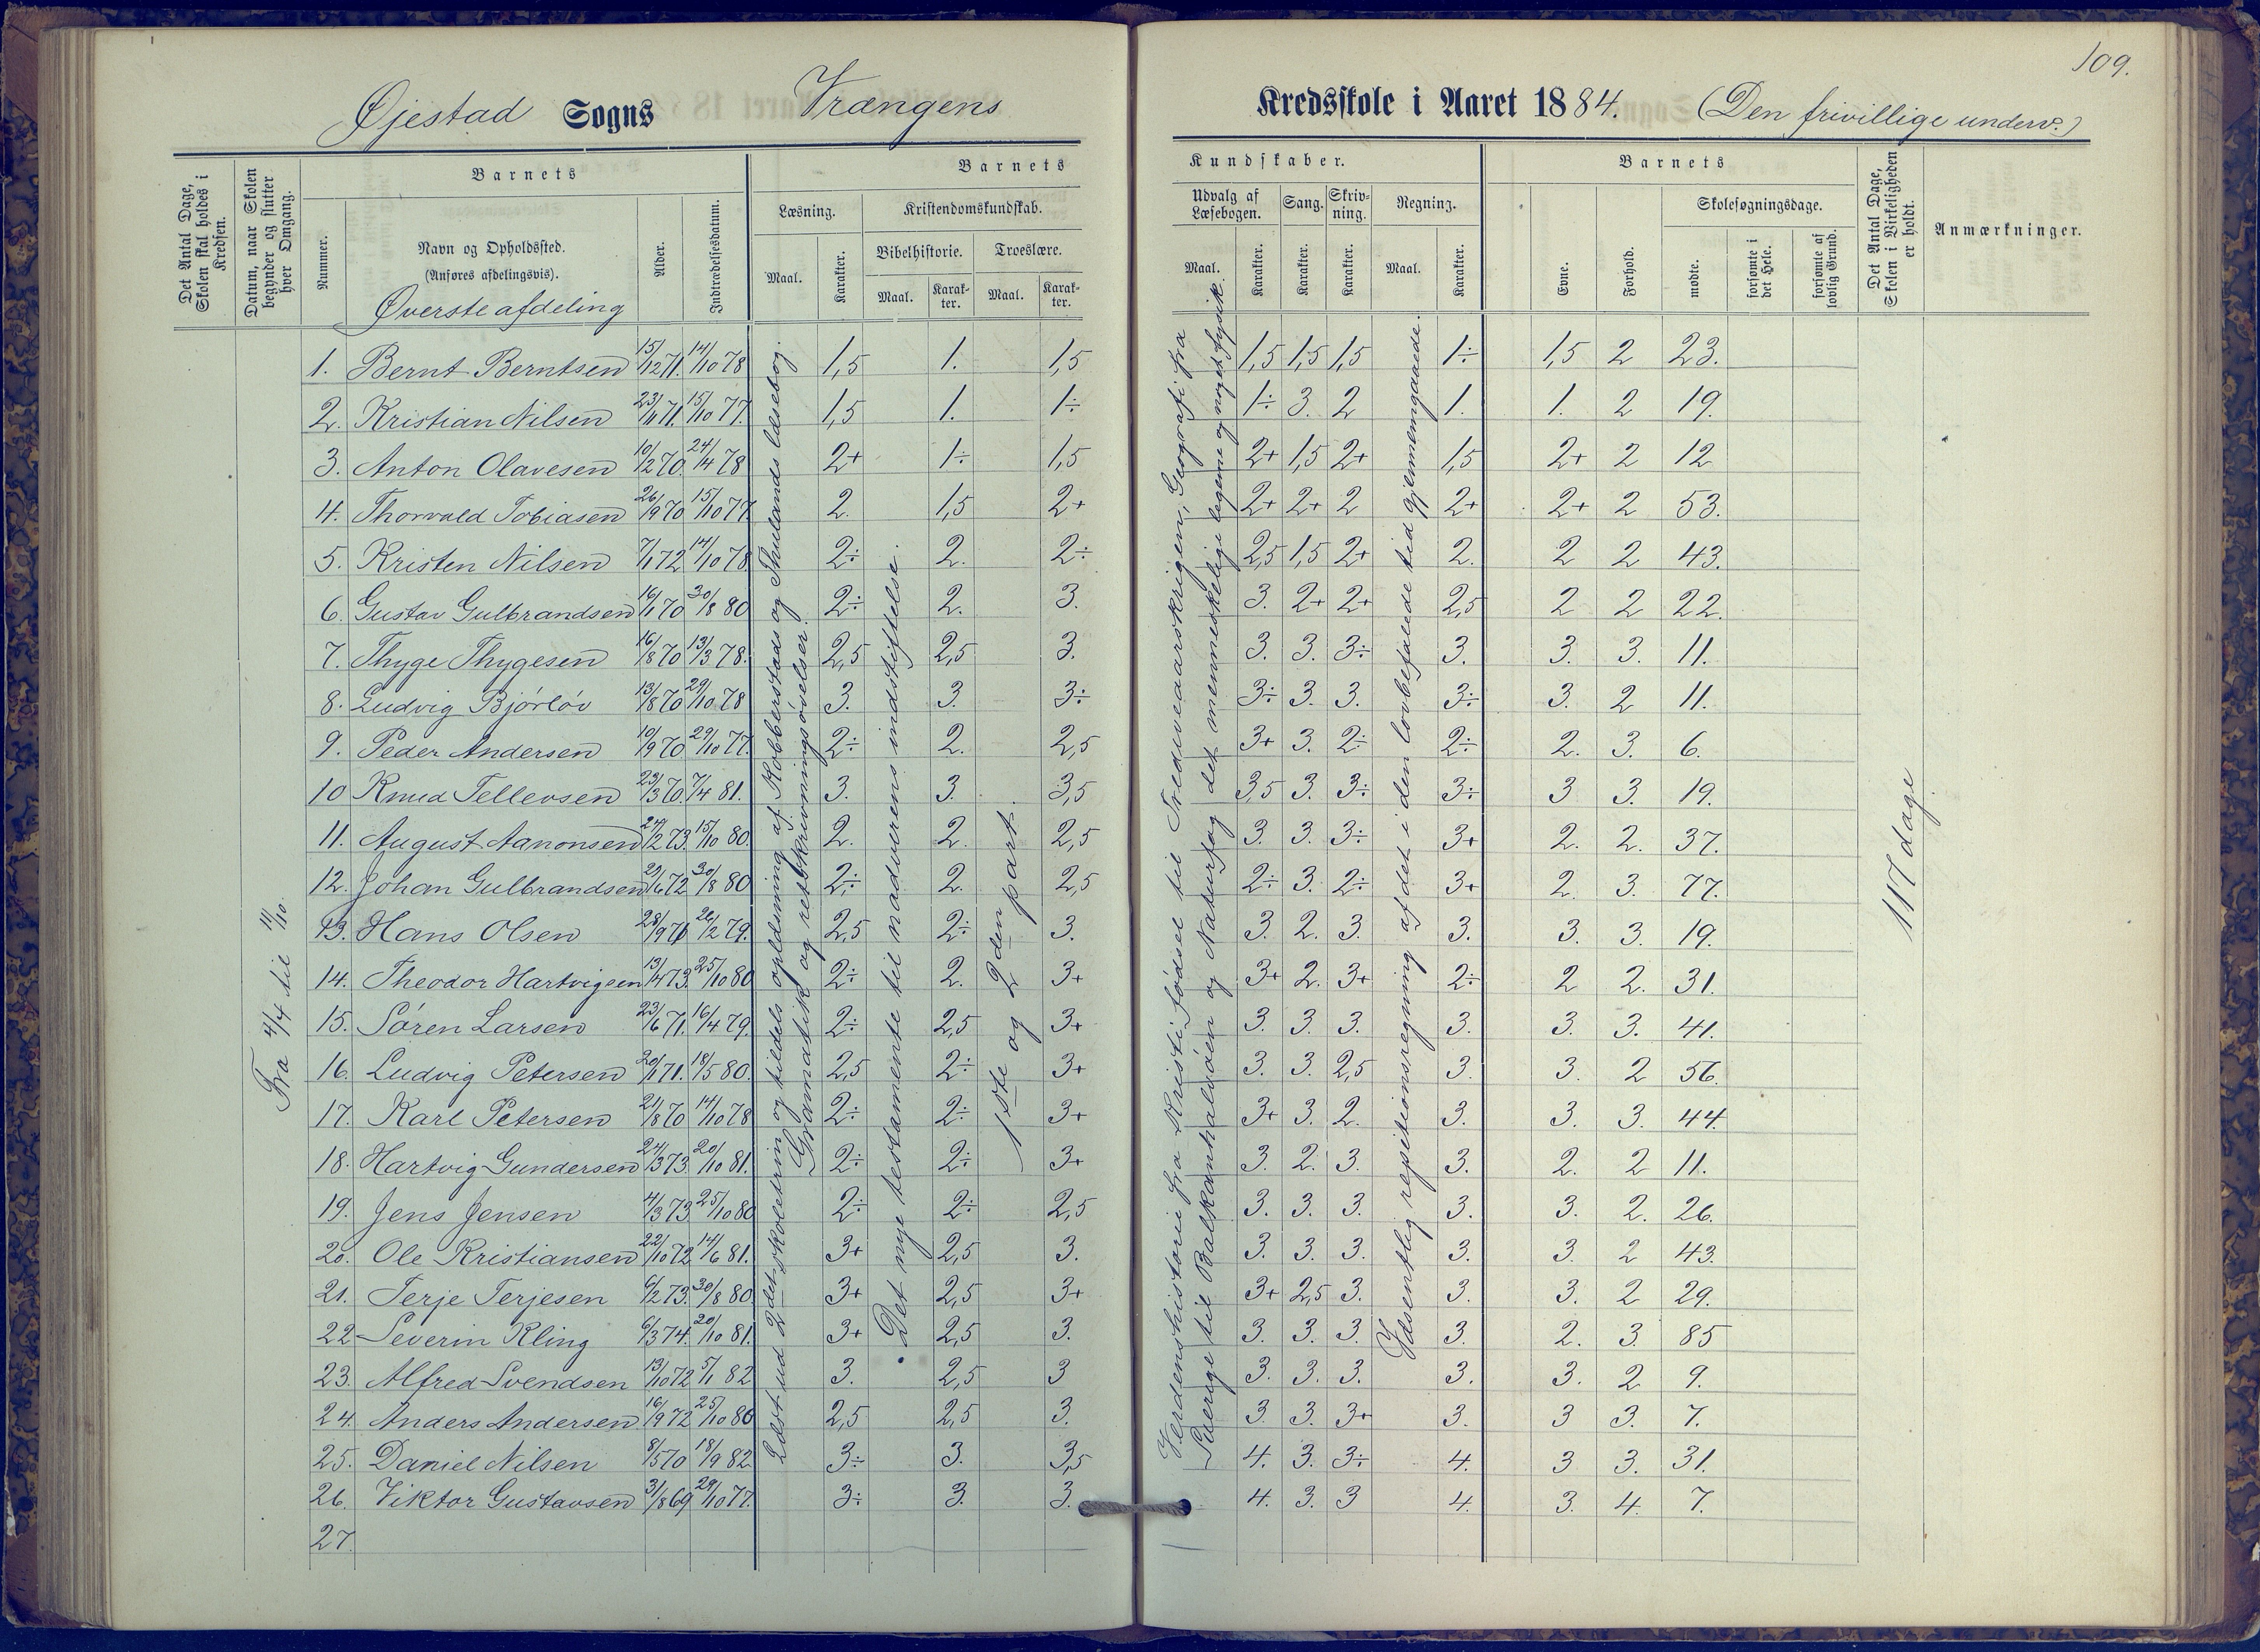 109.
Øjestad Sogns Vrængens Kredsskole i Aaret 1884. (Den frivillige underv.)
Det Antal Dage, Skolen skal holdes i Kredsen.
Datum, naar Skolen begynder og slutter hver Omgang.
Barnets
Nummer.
Navn og Opholdssted.
(Anføres afdelingsvis).
Øverste afdeling
Alder.
Indtrædelsesdatum.
Barnets Kundskaber.
Læsning.
Maal.
Karakter.
Kristendomskundskab.
Bibelhistorie.
Maal.
Karakter.
Troeslære.
Maal.
Karakter.
Udvalg af Læsebogen.
Maal.
Karakter.
Sang.
Karakter.
Skrivning.
Karakter.
Regning.
Maal.
Karakter.
Barnets
Evne.
Forhold.
Skolesøgningsdage.
mødte.
forsømte i det Hele.
forsømte af lovlig Grund.
Det Antal Dage, Skolen i Virkeligheden er holdt.
Anmærkninger.
1. Bernt Berntsen 15/12 71. 14/10 78 1,5 1. 1,5 1,5 1,5 1,5 1÷ 1,5 2 23.
2. Kristian Nilsen 23/11 71. 15/10 77. 1,5 1. 1÷ 1÷ 3. 2 1. 1. 2 19.
3. Anton Olavesen 10/2 70. 24/4 78 2+ 1÷ 1,5 2+ 1,5 2+ 1,5 2+ 2 12
4. Thorvald Tobiasen 26/9 70 15/10 77 2. 1,5 2+ 2+ 2+ 2 2+ 2+ 2 53.
5. Kristen Nilsen 7/1 72 14/10 78. 2÷ 2. 2÷ 2,5 1,5 2+ 2. 2 2 43.
6. Gustav Gulbrandsen 16/1 70 30/8 80 2÷ 2. 3. 3. 2+ 2+ 2,5 2 2 22.
7. Thyge Thygesen 16/8 70 13/3 78. 2,5 2,5 3. 3. 3. 3÷ 3. 3. 3. 11.
8. Ludvig Bjørløv 13/8 70 29/10 78 3. 3. 3÷ 3÷ 3. 3. 3÷ 3. 2 11.
9. Peder Andersen 10/9 70. 29/10 77. 2÷ 2. 2,5 3+ 3. 2÷ 2÷ 2. 3. 6.
10 Knud Tellevsen 23/3 70. 7/4 81. 3. 3. 3,5 3,5 3. 3÷ 3÷ 3 3. 19.
11. August Aanonsen 24/12 73. 15/10 80. 2. 2. 2,5 3. 3. 3÷ 3+ 2. 2. 37.
12. Johan Gulbrandsen 29/6 72 30/8 80 2÷ 2. 2,5 2÷ 3. 2÷ 3+ 2. 3. 77.
13. Hans Olsen 28/9 71 26/2 79. 2,5 2÷ 3. 3. 2. 3. 3. 3. 3. 19.
14. Theodor Hartvigsen 13/4 73. 25/10 80 2÷ 2. 3+ 3+ 2. 3+ 2÷ 2 2. 31.
15. Søren Larsen 23/6 71. 16/4 79. 2÷ 2,5 3+ 3. 3. 3. 3. 3. 3. 41.
16. Ludvig Petersen 20/1 71. 18/5 80. 2,5 2÷ 3+ 3. 3. 2,5 3. 3. 2 56.
17. Karl Petersen 21/8 70 14/10 78 2÷ 2÷ 3+ 3+ 3. 2. 3. 3. 3. 44.
18. Hartvig Gundersen 24/3 73 20/10 81. 2÷ 2÷ 3+ 3. 2. 3. 3. 2. 2 11.
19. Jens Jensen 4/3 73. 25/10 80 2÷ 2÷ 2,5 3. 3. 3. 3. 3. 2. 26.
20. Ole Kristiansen 22/10 72 14/6 81. 3+ 2,5 3. 3. 3. 3. 3. 3. 2 43.
21. Terje Terjesen 6/2 73. 30/8 80 3+ 2,5 3+ 3+ 2,5 3. 3. 3. 2 29.
22 Severin Kling 6/3 74. 20/10 81. 3+ 2,5 3. 3. 3. 3. 3. 2. 3. 85
23. Alfred Svendsen 13/10 72 5/1 82 3. 2,5 3 3. 3. 3. 3. 3. 2 9.
24. Anders Andersen 16/9 72 25/10 80 2,5 2,5 3. 3. 3. 3+ 3. 3 3. 7.
25. Daniel Nilsen 8/5 70 18/9 82 3÷ 3. 3,5 4. 3. 3÷ 4. 3 3. 31.
26. Viktor Gustavsen 31/8 69 29/10 77. 3÷ 3. 3. 4. 3. 3 4. 3. 4. 7.
27.
Fra 4/4 til 11/10.
Læst ud 2det skoletrin og tildels oplæsning af Kobberstads og Thulands læsebog.
Gramatik og retskrivningsøvelser.
Det nye testamente til nadverens indstiftelse.
1ste og 2den part.
Verdenshistorie fra Kristi fødsel til Trediveaarskrigen, Geografi fra
Sverige til Balkanhalvøen og Naturfag det menneskelige legeme og noget fysik.
Væsentlig repetitionsregning af det i den lovbefalede tid gjennemgaaede.
117 dage